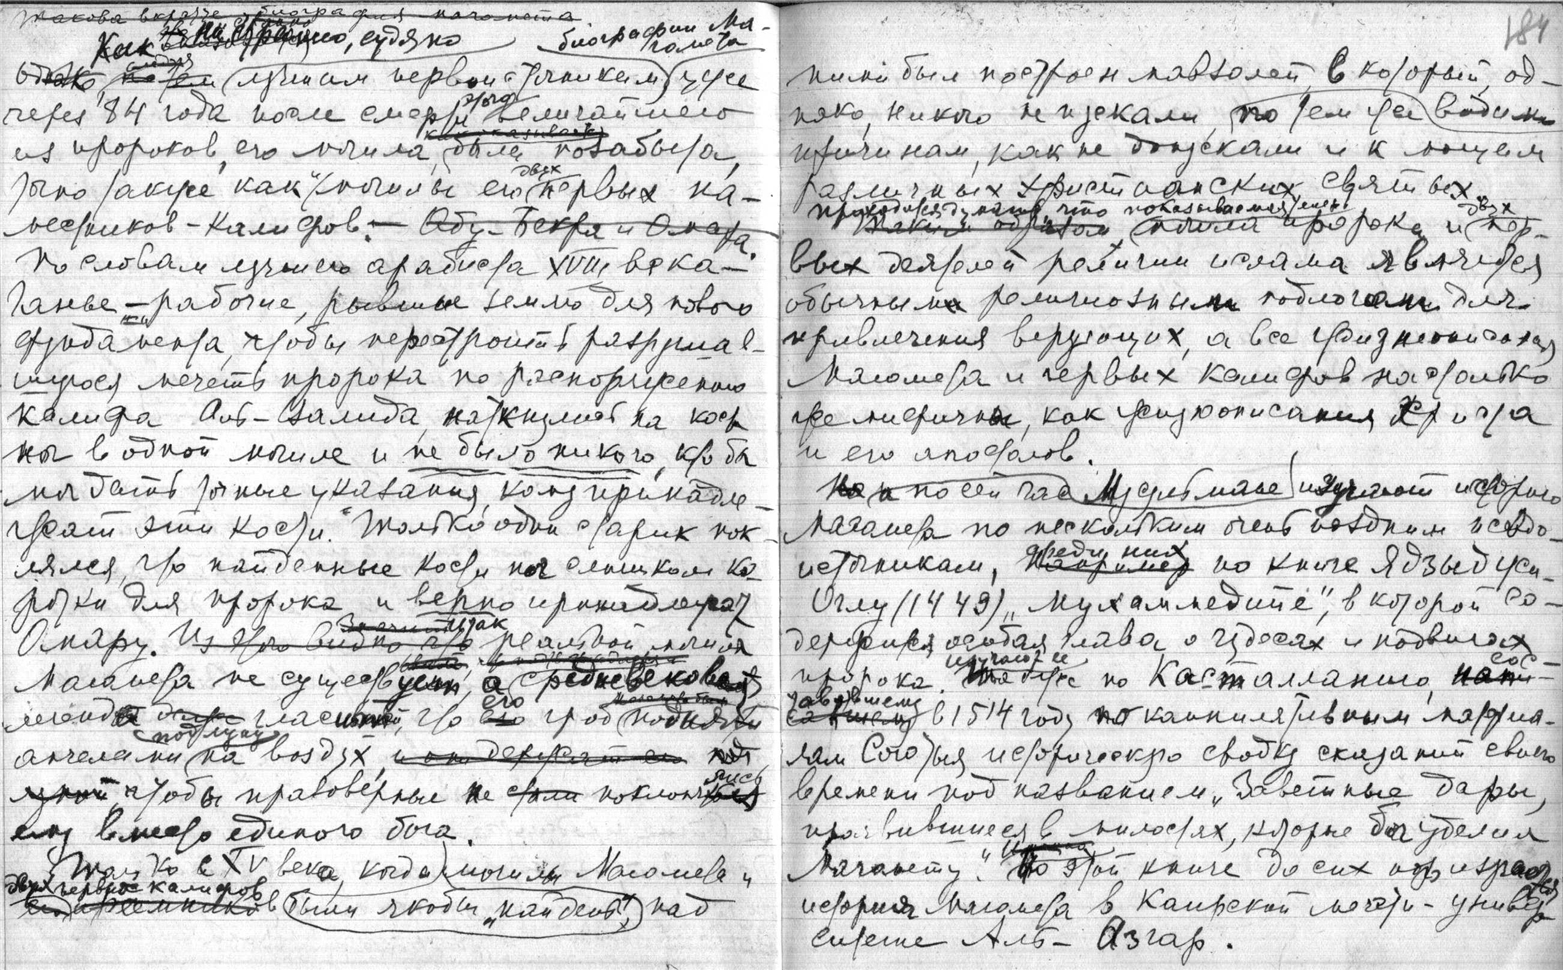 Такова вкратце биография Магомета
Как ни странно, судя по биографии Ма-
гомета
лучшим первоисточникам, уже
через 84 года после смерти этого величайшего
из пророков, его могила была позабыта,
точно также как и могилы его двух первых на-
местников-калифов. — Абу-Бекра и Омара.
По словам лучшего арабиста XVIII века —
Ганье — рабочие, рывшие землю для нового
фундамента, чтобы перестроить разрушав-
шуюся мечеть пророка по распоряжению
калифа Аль-Валида, наткнулись на кост
ны в одной могиле и не было никого, кто бы
мог дать точные указания, кому принадле-
жат эти кости. Только один старик пок-
лялся, что найденные кости слишком ко-
ротки для пророка и верно принадлежат
Омару. Из этого видно что реальной могилы
Магомета не существует, а средневековая
легенда гласит, что его гроб поднят
ангелами на воздух, и они держат его под
луной чтобы правоверные не стали поклоняться
ему вместо единого бога.
Только в XV веке, когда могилы Магомета и
двух первых калифов
его преемников были якобы „найдены", над
184
ними был построен мавзолей, в который, од-
нако, никого не пускали, по тем же видимо
причинам, как не допускали и к мощам
различных христианских святых.
приходится думать, что показываемая теперь
Таким образом могила пророка и двух пер-
вых деятелей религии ислама является
обычным религиозным подлогом для
привлечения верующих, а все жизнеописания
Магомета и первых калифов настолько
же мифичны, как жизнеописания Христа
и его апостолов.
Но и по сей час Мусульмане изучают историю
Магомета по нескольким очень поздним псевдо-
источникам, среди них по книге Ядзыджи-
Оглу (1449) „Мухаммедие", в которой со-
держится особая глава о чудесах и подвигах
пророка. изучают ее Также по Касталлани, сос-
тавившему в 1514 году по компилятивным материа-
лам историческую сводку сказаний своего
времени под названием „Заветные дары,
проявившиеся в милостях, которые бог уделил
Магомету". По этой книге до сих пор изучается
история Магомета в Каирской мечети-универ-
ситете Аль-Азгар.